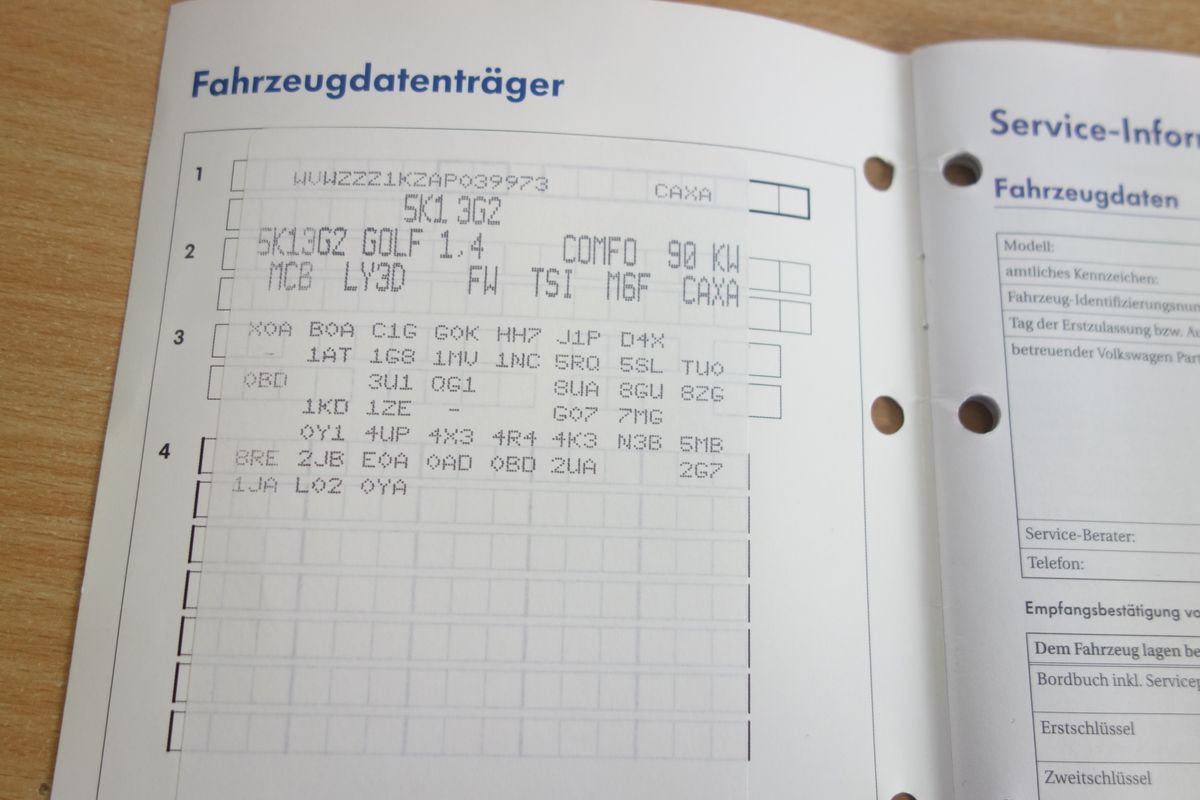 Fahrzeugdatenträger
1 WVWZZZ1KZAP039973 CAXA
5K1 3G2
2 5K13G2 GOLF 1,4 COMFO 90 KW
MCB LY3D FW TSI M6F CAXA
3 X0A B0A C1G G0K HH7 J1P D4X
- 1AT 1G8 1MV 1NC 5RQ 5SL TU0
0BD 3U1 QG1 8UA 8GU 8ZG
1KD 1ZE - G07 7MG
0Y1 4UP 4X3 4R4 4K3 N3B 5MB
4 8RE 2JB E0A 0AD 0BD 2UA 2G7
1JA L02 0YA
Service-Infor
Fahrzeugdaten
Modell:
amtliches Kennzeichen:
Fahrzeug-Identifizierungsnu
Tag der Erstzulassung bzw. Au
betreuender Volkswagen Part
Service-Berater:
Telefon:
Empfangsbestätigung vo
Dem Fahrzeug lagen be
Bordbuch inkl. Servicep
Erstschlüssel
Zweitschlüssel